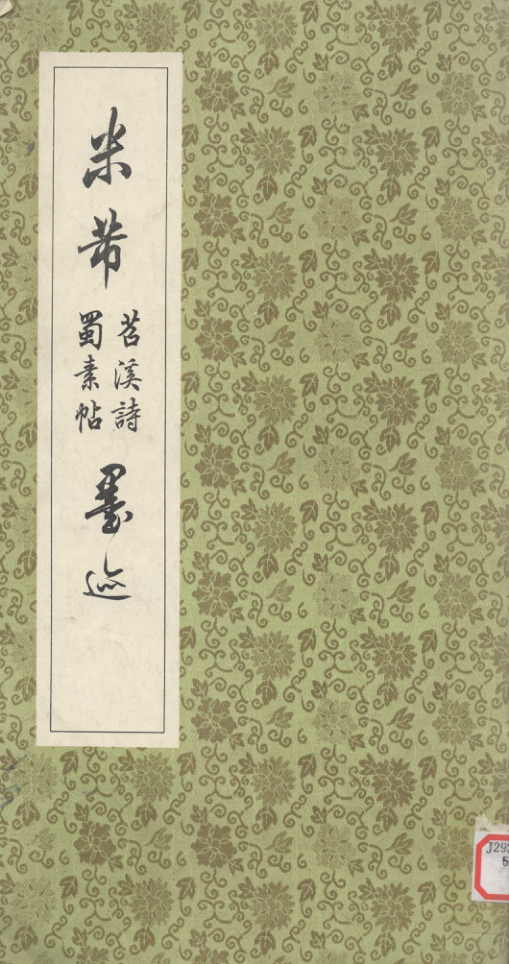 米芾
苕溪詩
蜀素帖
墨迹
J292
5